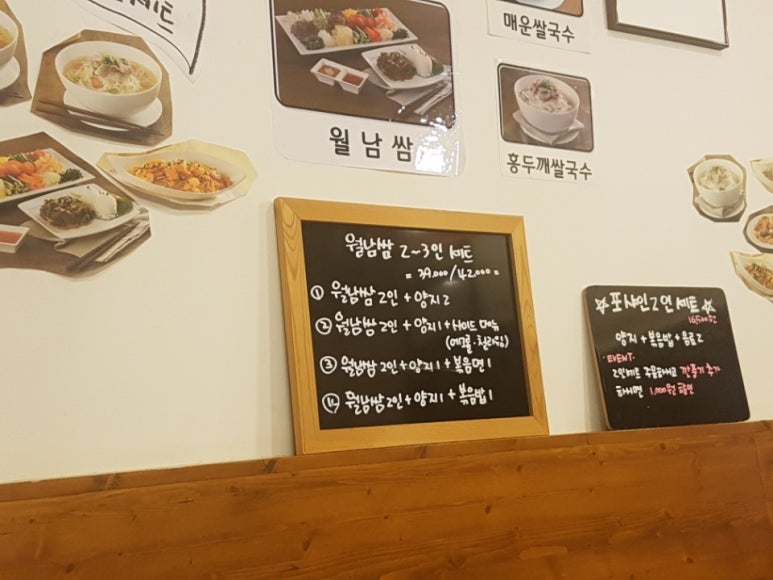 세트
매운쌀국수
월남쌈
홍두깨쌀국수
월남쌈 2~3인 세트
= 39.000/42.000 =
① 월남쌈 2인 + 양지 2
② 월남쌈 2인 + 양지 1 + 사이드 메뉴
(에그롤·칠리윙)
③ 월남쌈 2인 + 양지 1 + 볶음면 1
④ 월남쌈 2인 + 양지 1 + 볶음밥 1
☆ 포샤인 2인 세트 ☆
16,500원
양지 + 볶음밥 + 음료 2
EVENT.
2인세트 주문하시고 깐풍기 추가
하시면 1,000원 할인